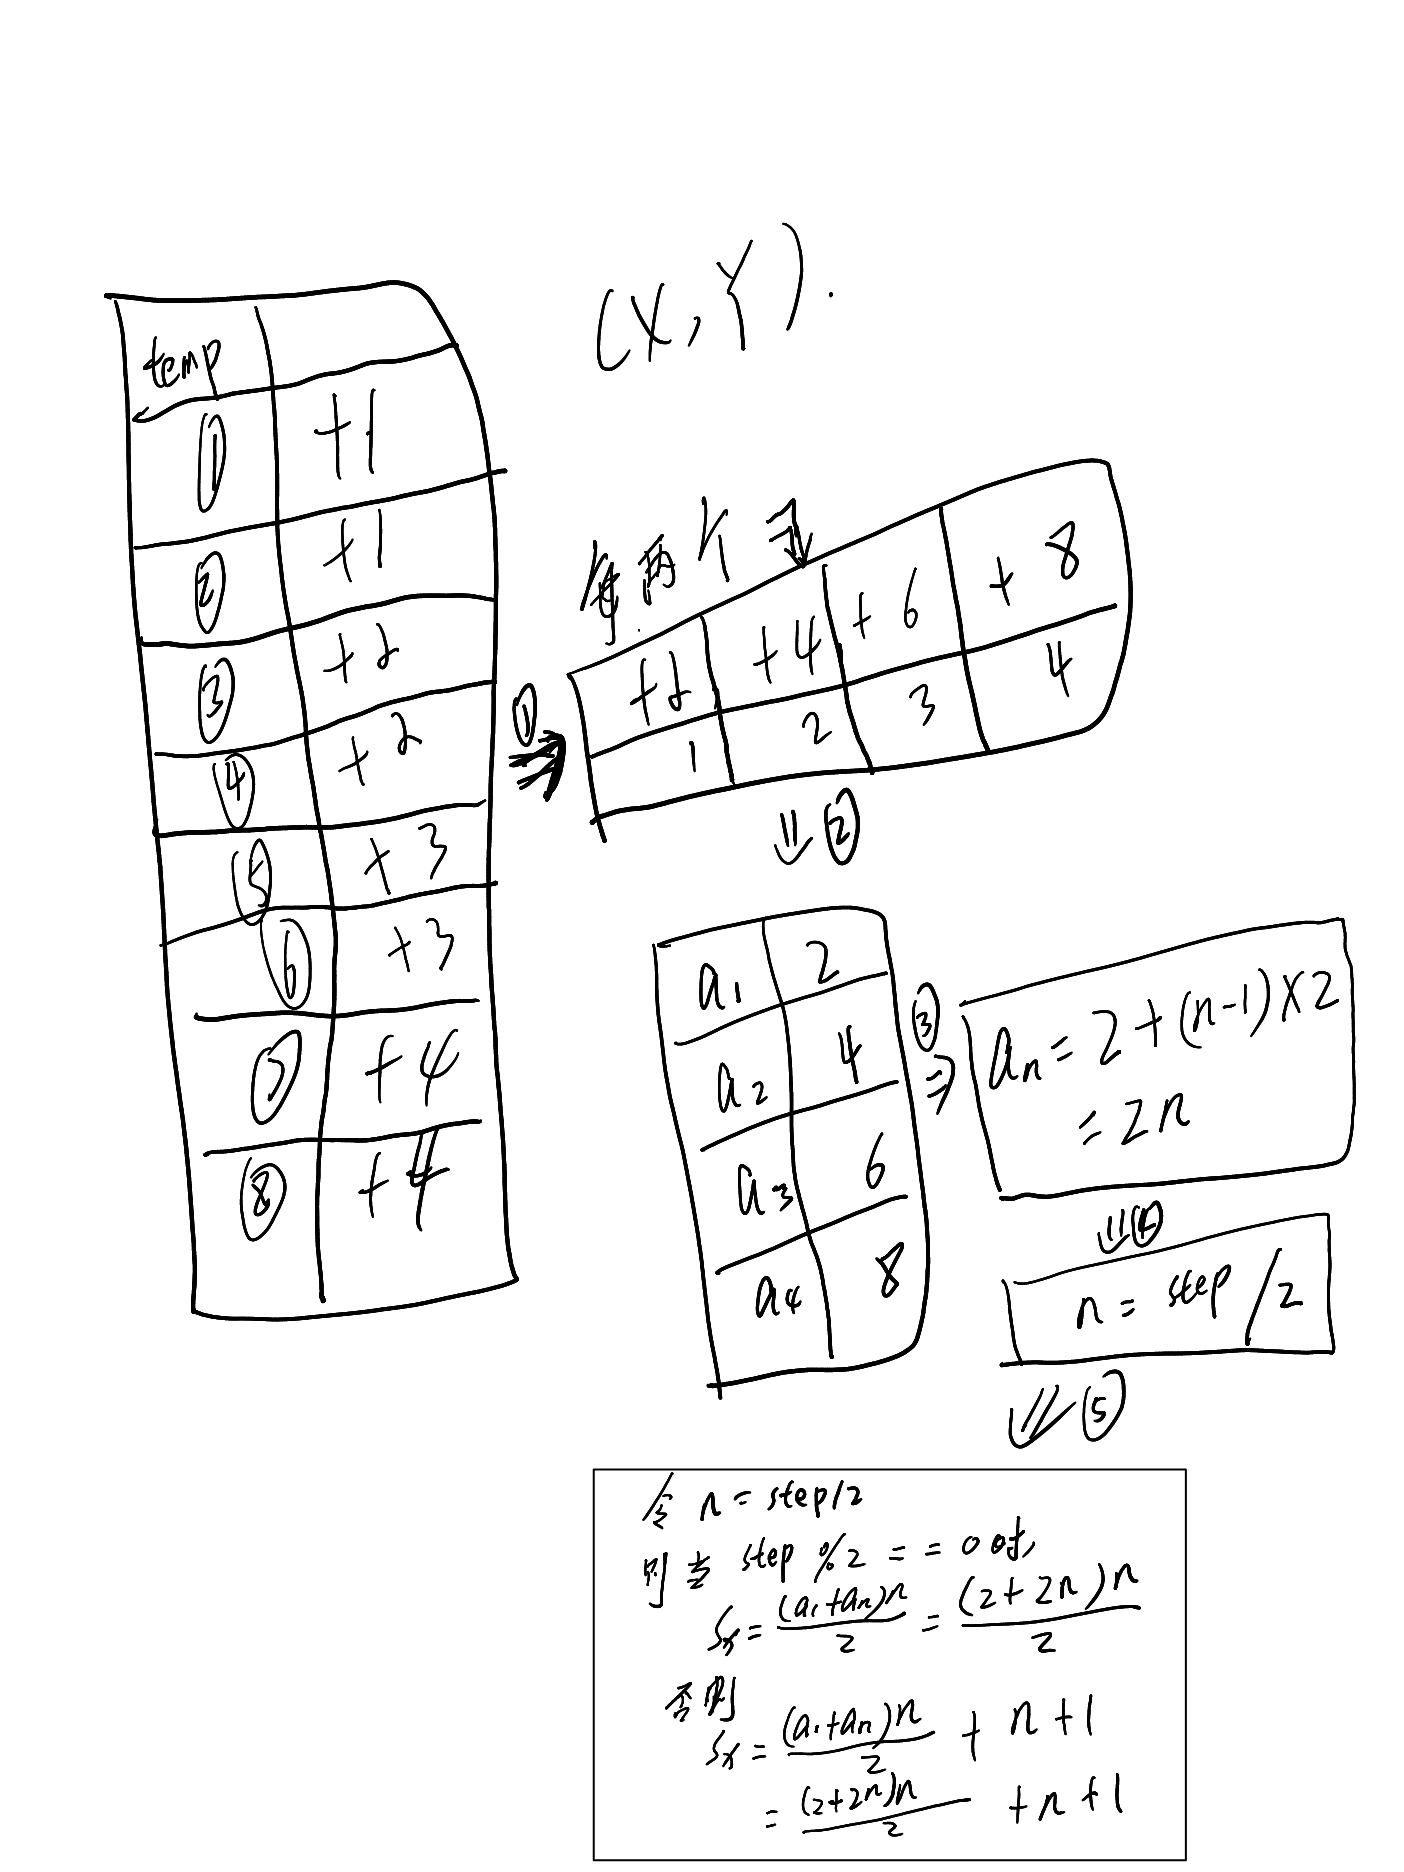 (X, Y).
temp
① +1
② +1
③ +2
④ +2
⑤ +3
⑥ +3
⑦ +4
⑧ +4
①
每两个
+2 +4 +6 +8
1 2 3 4
②
a1 2
a2 4
a3 6
a4 8
③
an = 2 + (n-1)×2
= 2n
④
n = step / 2
⑤
令 n = step/2
则当 step %2 == 0 时,
Sx = (a1+an)n / 2 = (2+2n)n / 2
否则
Sx = (a1+an)n / 2 + n+1
= (2+2n)n / 2 + n+1